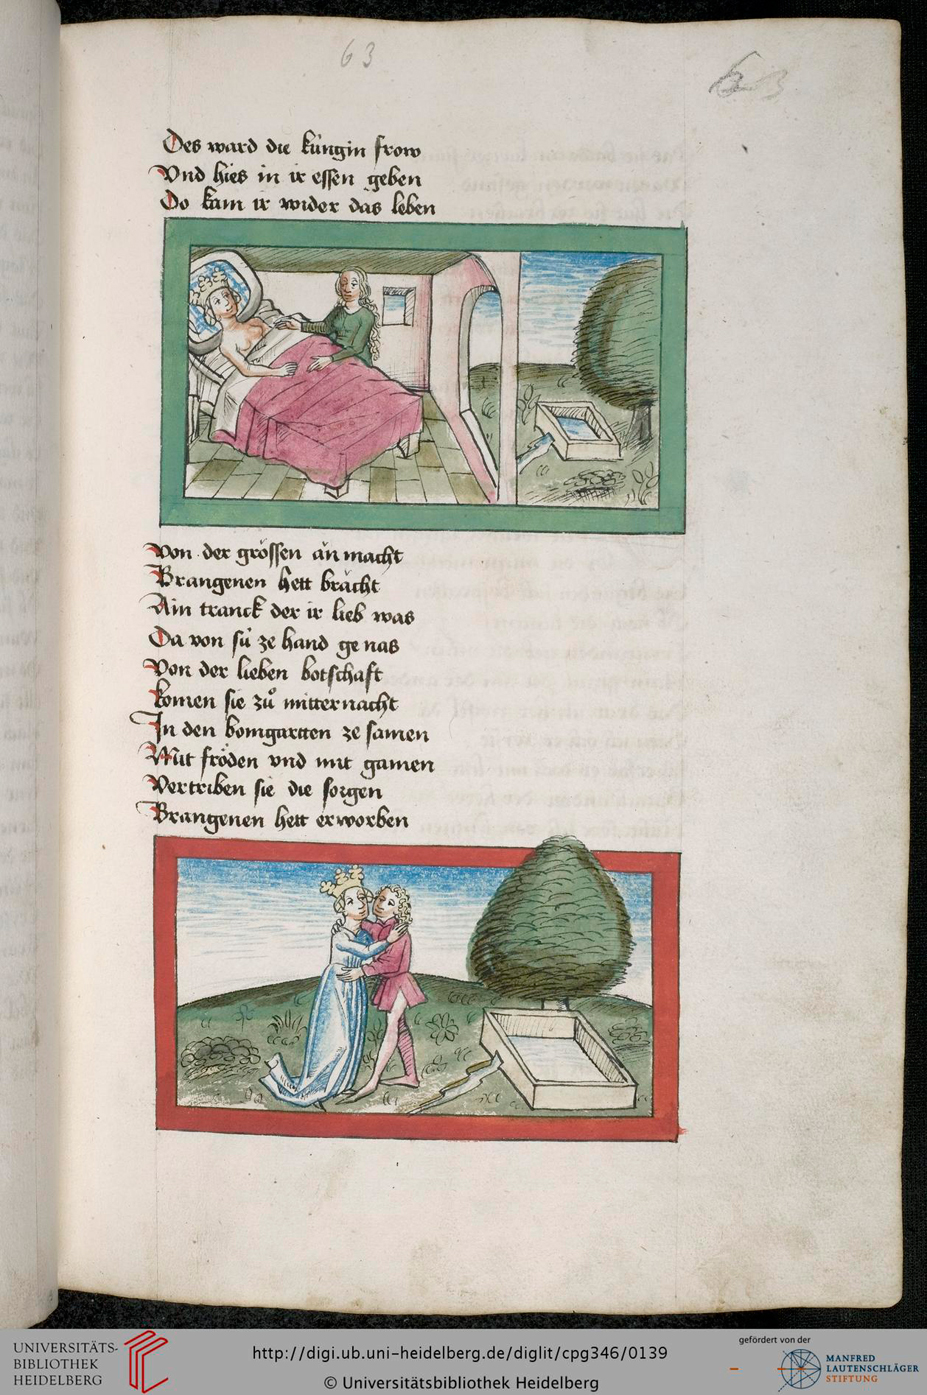 63
63
Des ward die kúngin frow
Vnd hies in ir essen geben
Do kam ir wider das leben
Von der grössen än macht
Brangenen hett brächt
Ain tranck der ir lieb was
Da von sú ze hand ge nas
Von der lieben botschaft
komen sie zuͦ mitternacht
In den bomgartten ze samen
Mit fröden vnd mit gamen
Vertriben sie die sorgen
Brangenen hett erworben
UNIVERSITÄTS-
BIBLIOTHEK
HEIDELBERG
http://digi.ub.uni-heidelberg.de/diglit/cpg346/0139
© Universitätsbibliothek Heidelberg
gefördert von der
MANFRED
LAUTENSCHLÄGER
STIFTUNG